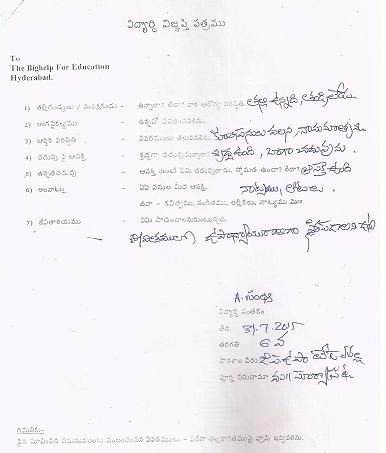 విద్యార్థి విజ్ఞప్తి పత్రము
To
The Bighelp For Education
Hyderabad.
1) తల్లిదండ్రులు / సంరక్షకుడు - ఉన్నారా? లేరా? వారి ఆరోగ్య పరిస్థితి. తల్లి ఉన్నది, తండ్రి లేడు
2) అంగవైకల్యము - ఉన్నచో వివరించవలెను.
3) ఆర్థిక పరిస్థితి - వివరములు తెలుపవలెను.
4) చదువు పై ఆసక్తి - శ్రద్ధగా చదువుతున్నారా? శ్రద్ధ ఉంది, బాగా చదువును.
5) ఉన్నతచదువు - ఆసక్తి ఉంటే ఏమి చదువుతారు. స్తోమత ఉందా? లేదా? ఆసక్తి ఉంది
6) అలవాట్లు - ఏఏ పనుల మీద ఆసక్తి. నాట్యము, ఆటలు.
ఉదా - కవిత్వము, సంగీతము, ఆర్టికల్సు, నాట్యము మొ॥
7) జీవితాశయము - ఏమి సాధించాలనుకుంటున్నది.
A. సంధ్య
విద్యార్థి సంతకం
తేది. 31.7.2015
తరగతి 6 వ
పాఠశాల పేరు
పూర్తి చిరునామా
గమనిక:-
పైన సూచించిన విషయములకు సంబంధించిన వివరములు - విడిగా తెల్లకాగితముపై వ్రాసి ఇవ్వవలెను.